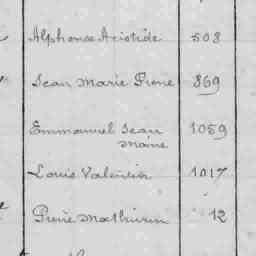 Alphonse Aristide 508
Jean Marie Pierre 869
Emmanuel Jean 1059
Marie
Louis Valentin 1017
Pierre Mathurin 12